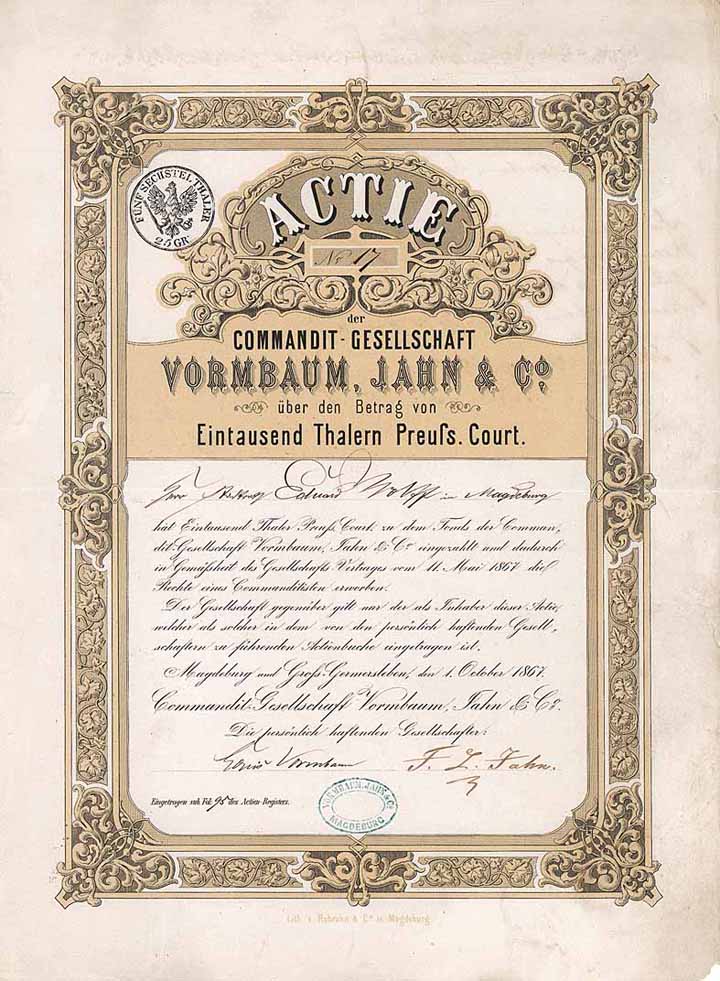 FÜNF SECHSTEL THALER
25 GR.
ACTIE
No. 17
der
COMMANDIT-GESELLSCHAFT
VORMBAUM, JAHN & Co.
über den Betrag von
Eintausend Thalern Preuſs. Court.
Herr Eduard in Magdeburg
hat Eintausend Thaler Preuß. Court. zu dem Fonds der Comman-
dit-Gesellschaft Vormbaum, Jahn & Co. eingezahlt und dadurch
in Gemäßheit des Gesellschafts Vertrages vom 11. Mai 1867 die
Rechte eines Commanditisten erworben.
Der Gesellschaft gegenüber gilt nur der als Inhaber dieser Actie,
welcher als solcher in dem von den persönlich haftenden Gesell-
schaftern zu führenden Actienbuche eingetragen ist.
Magdeburg und Groß-Germersleben, den 1. October 1867.
Commandit-Gesellschaft Vormbaum, Jahn & Co.
Die persönlich haftenden Gesellschafter:
Louis Vormbaum F. L. Jahn.
Eingetragen sub Fol. 95 des Actien-Registers.
VORMBAUM, JAHN & Co.
MAGDEBURG
Lith. v. & Co. in Magdeburg.